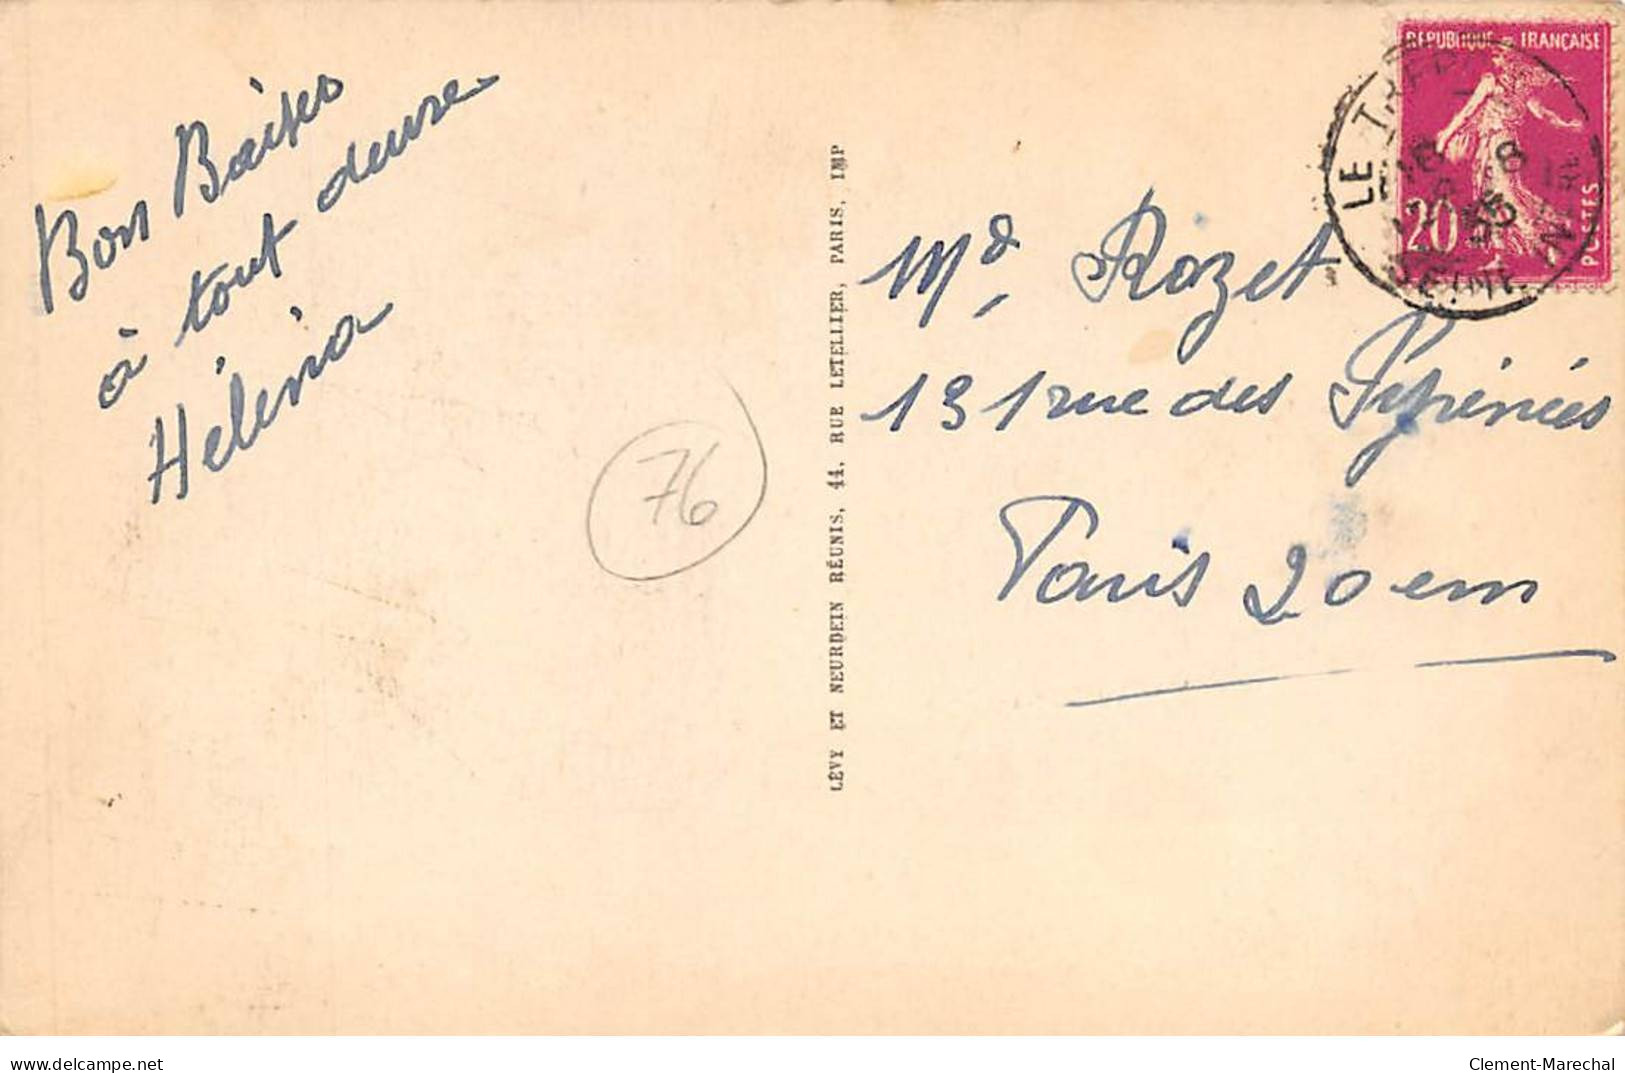 Bons Baises
à tout deuxe
Hélèna
76
LÉVY ET NEURDEIN RÉUNIS, 44, RUE LETELLIER, PARIS, IMP
RÉPUBLIQUE FRANÇAISE
20
POSTES
LE TREPORT
16
8
SEINE INFRE
Md Rozet
131 rue des Pyrénées
Paris 20 em
delcampe.net
Clement-Marechal